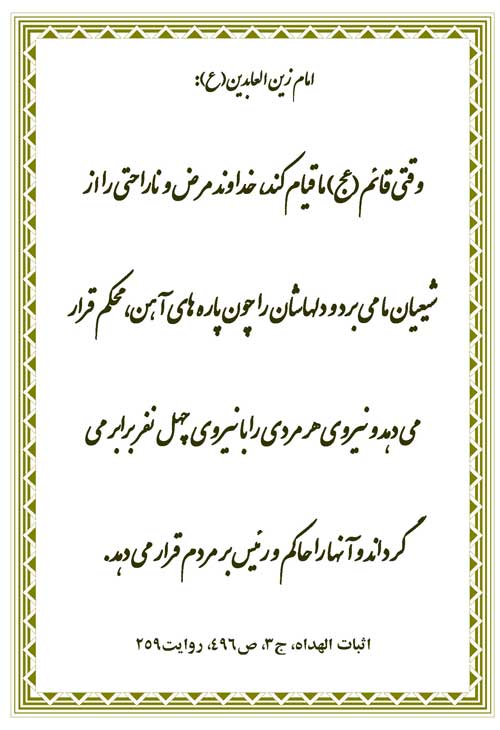 امام زین العابدین(ع):
وقتی قائم (عج) ما قیام کند، خداوند مرض و ناراحتی را از
شیعیان ما می برد و دلهاشان را چون پاره های آهن، محکم قرار
می دهد و نیروی هر مردی را با نیروی چهل نفر برابر می
گرداند و آنها را حاکم و رئیس بر مردم قرار می دهد.
اثبات الهداه، ج۳، ص۴۹۶، روایت۲۵۹